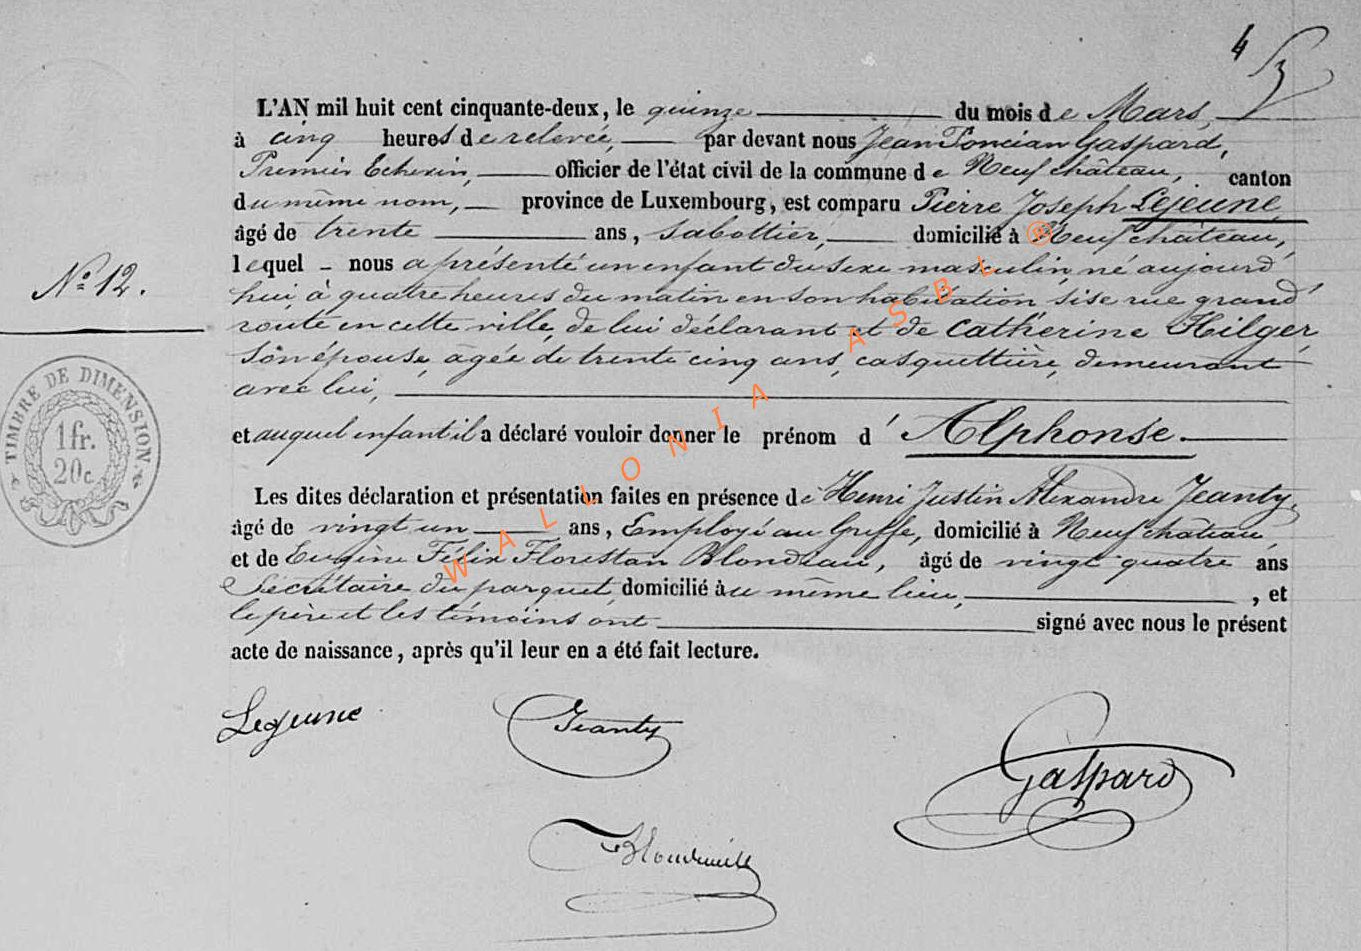 4
L'AN mil huit cent cinquante-deux, le quinze du mois de Mars,
à cinq heures de relevée, par devant nous Jean Poncian Gaspard,
Premier Echevin, officier de l'état civil de la commune de Neufchâteau, canton
du même nom, province de Luxembourg, est comparu Pierre Joseph Lejeune,
âgé de trente ans, sabottier, domicilié à Neufchâteau,
lequel nous a présenté un enfant du sexe masculin, né aujourd'
hui à quatre heures du matin en son habitation, sise rue grand'
route en cette ville, de lui déclarant et de Catherine Hilger,
son épouse, agée de trente cinq ans, casquettière, demeurant
avec lui,
et auquel enfant il a déclaré vouloir donner le prénom d'Alphonse.
Les dites déclaration et présentation faites en présence de Henri Justin Alexandre Jeanty,
âgé de vingt un ans, Employé au Greffe, domicilié à Neufchâteau
et de Eugène Félix Florestan Blondiau, âgé de vingt quatre ans
Secrétaire du parquet, domicilié au même lieu, , et
le père et les témoins ont signé avec nous le présent
acte de naissance, après qu'il leur en a été fait lecture.
N° 12.
TIMBRE DE DIMENSION
1 fr.
20 c.
Lejeune
Jeanty
Gaspard
WALLONIA ASBL ®